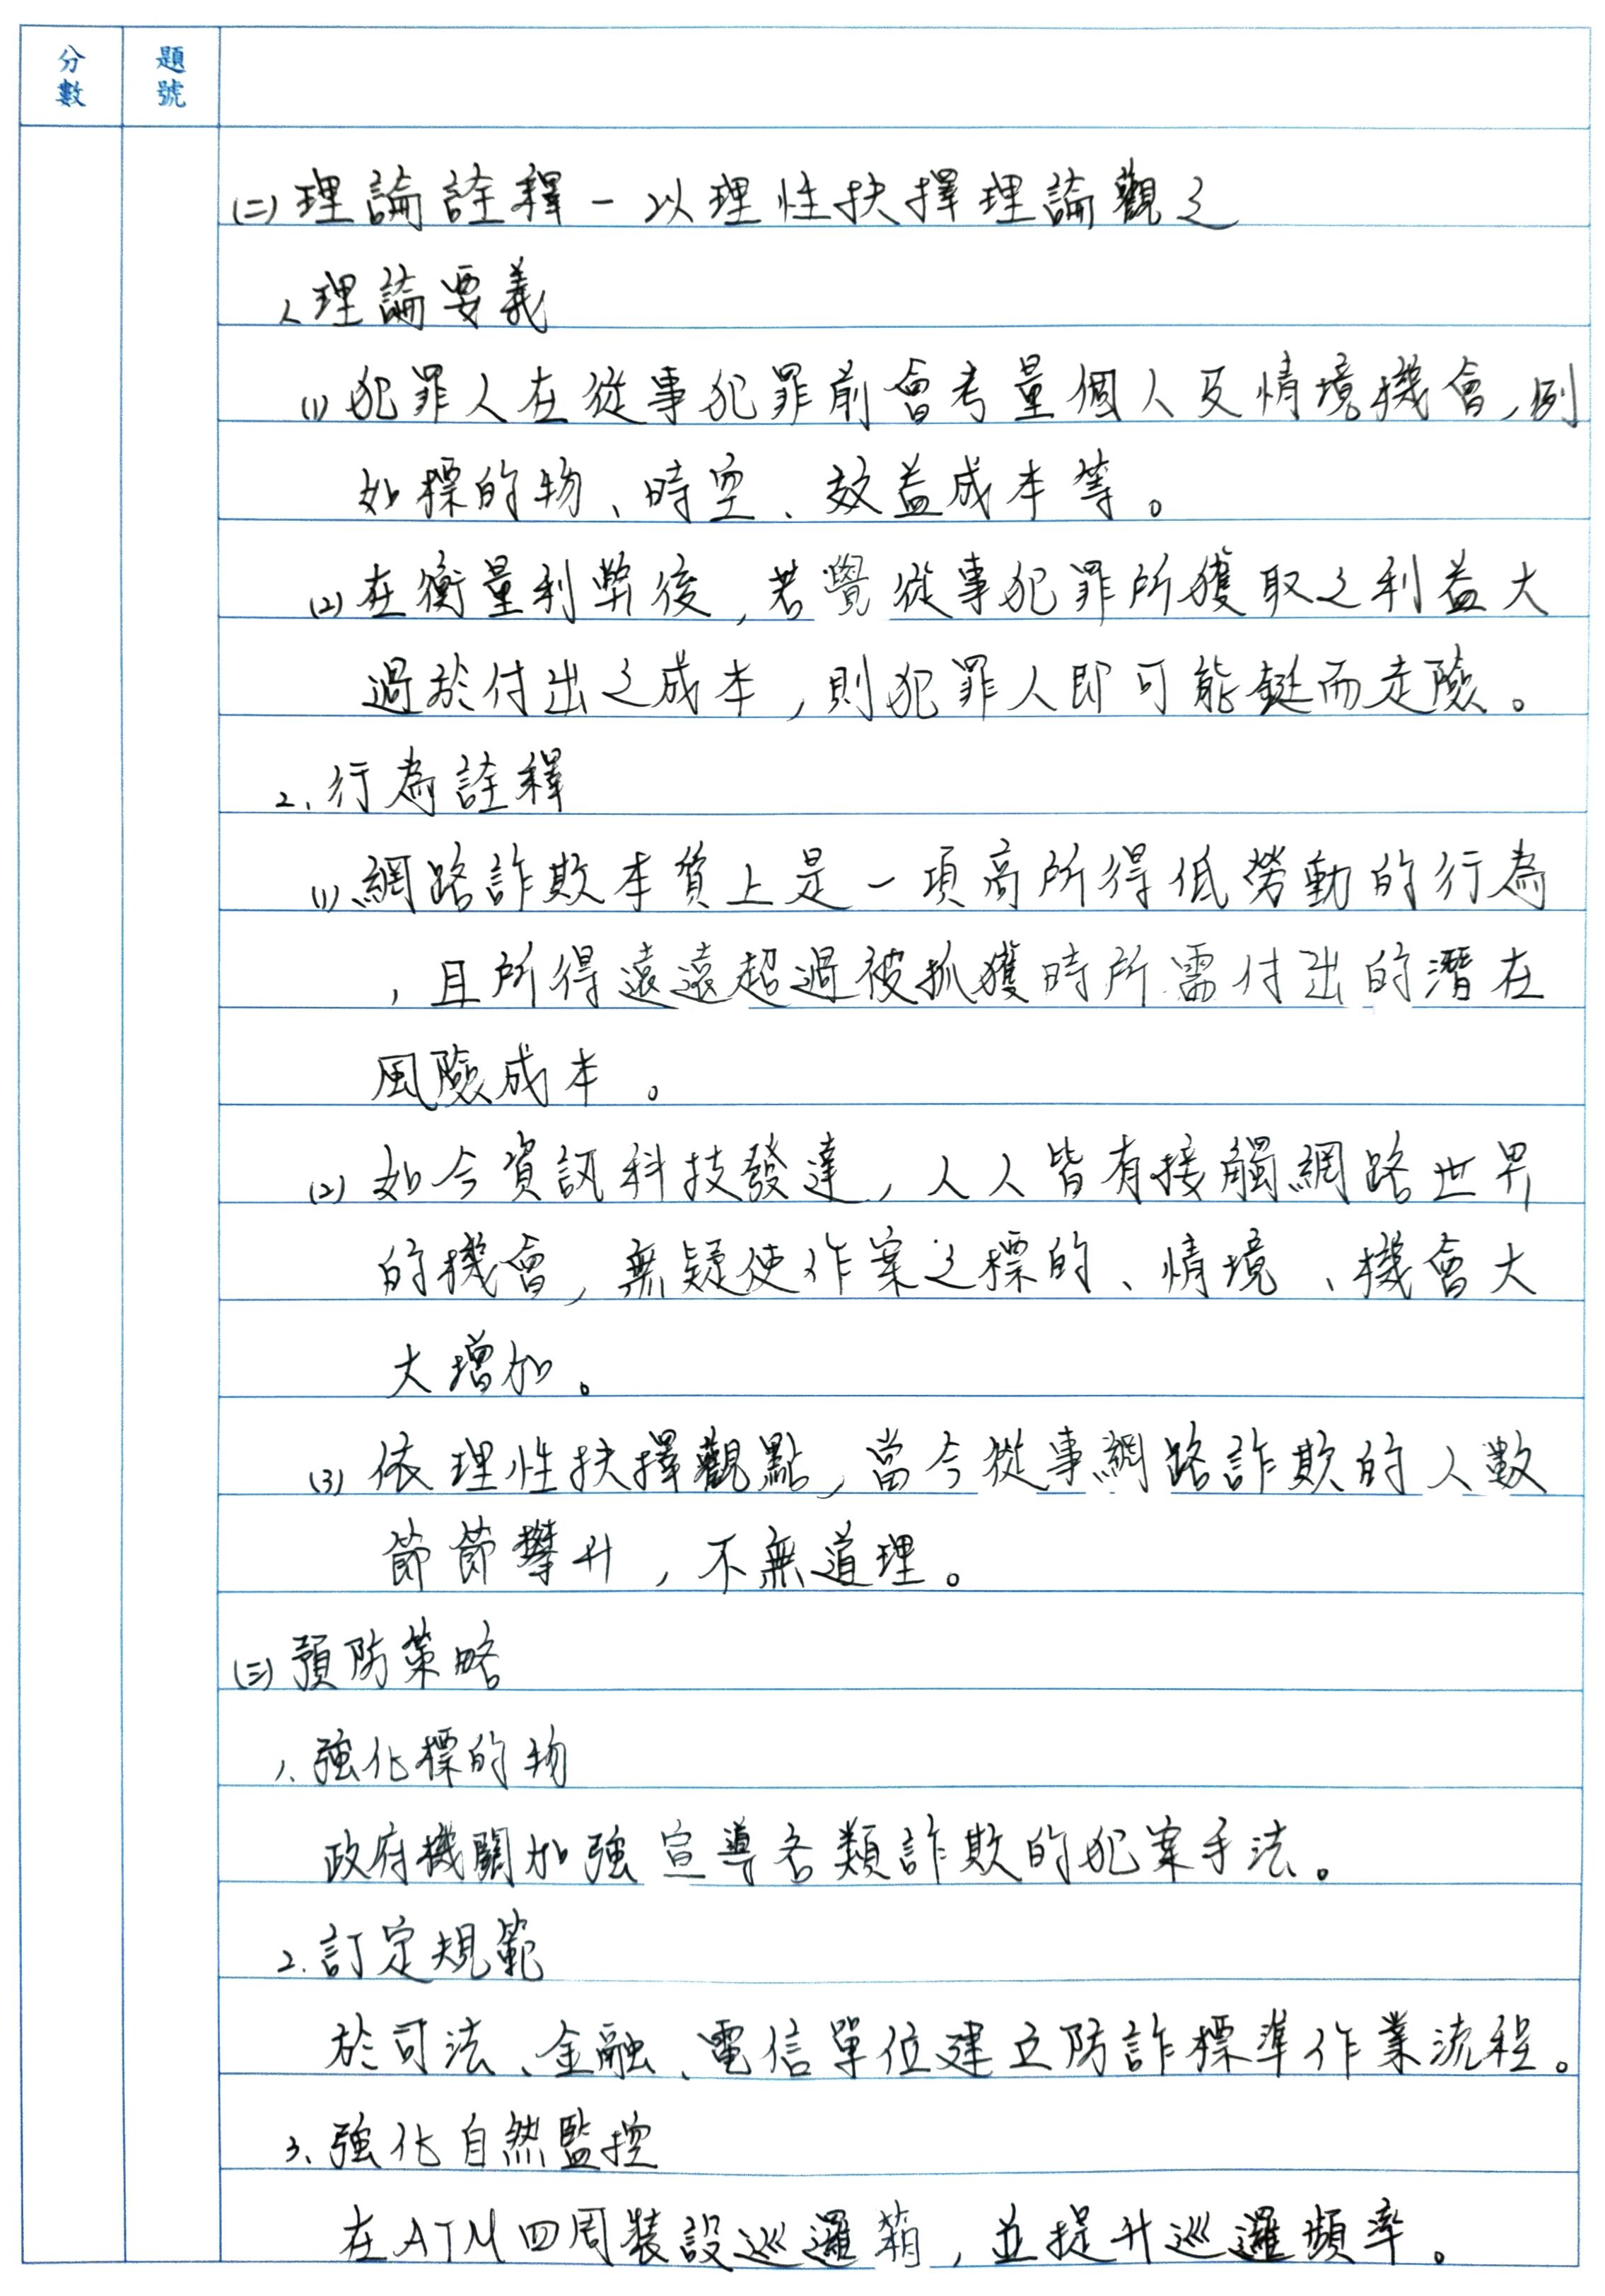 分數 題號
(二)理論詮釋－以理性抉擇理論觀之
1.理論要義
(1)犯罪人在從事犯罪前會考量個人及情境機會,例
如標的物、時空、效益成本等。
(2)在衡量利弊後,若覺從事犯罪所獲取之利益大
過於付出之成本,則犯罪人即可能鋌而走險。
2.行為詮釋
(1)網路詐欺本質上是一項高所得低勞動的行為
,且所得遠遠超過被抓獲時所需付出的潛在
風險成本。
(2)如今資訊科技發達,人人皆有接觸網路世界
的機會,無疑使作案之標的、情境、機會大
大增加。
(3)依理性抉擇觀點,當今從事網路詐欺的人數
節節攀升,不無道理。
(三)預防策略
1.強化標的物
政府機關加強宣導各類詐欺的犯案手法。
2.訂定規範
於司法、金融、電信單位建立防詐標準作業流程。
3.強化自然監控
在ATM四周裝設巡邏箱,並提升巡邏頻率。